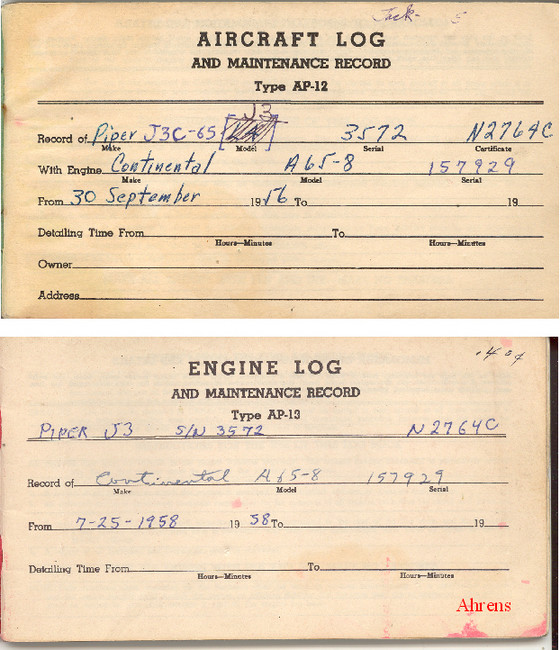 Jack-
AIRCRAFT LOG
AND MAINTENANCE RECORD
Type AP-12
J3
Record of Piper J3C-65 3572 N2764C
Make Model Serial Certificate
With Engine Continental A65-8 157929
Make Model Serial
From 30 September 1956 To 19
Detailing Time From To
Hours—Minutes Hours—Minutes
Owner
Address
ENGINE LOG
AND MAINTENANCE RECORD
Type AP-13
PIPER J3 S/N 3572 N2764C
Record of Continental A65-8 157929
Make Model Serial
From 7-25-1958 19 58 To 19
Detailing Time From To
Hours—Minutes Hours—Minutes
Ahrens